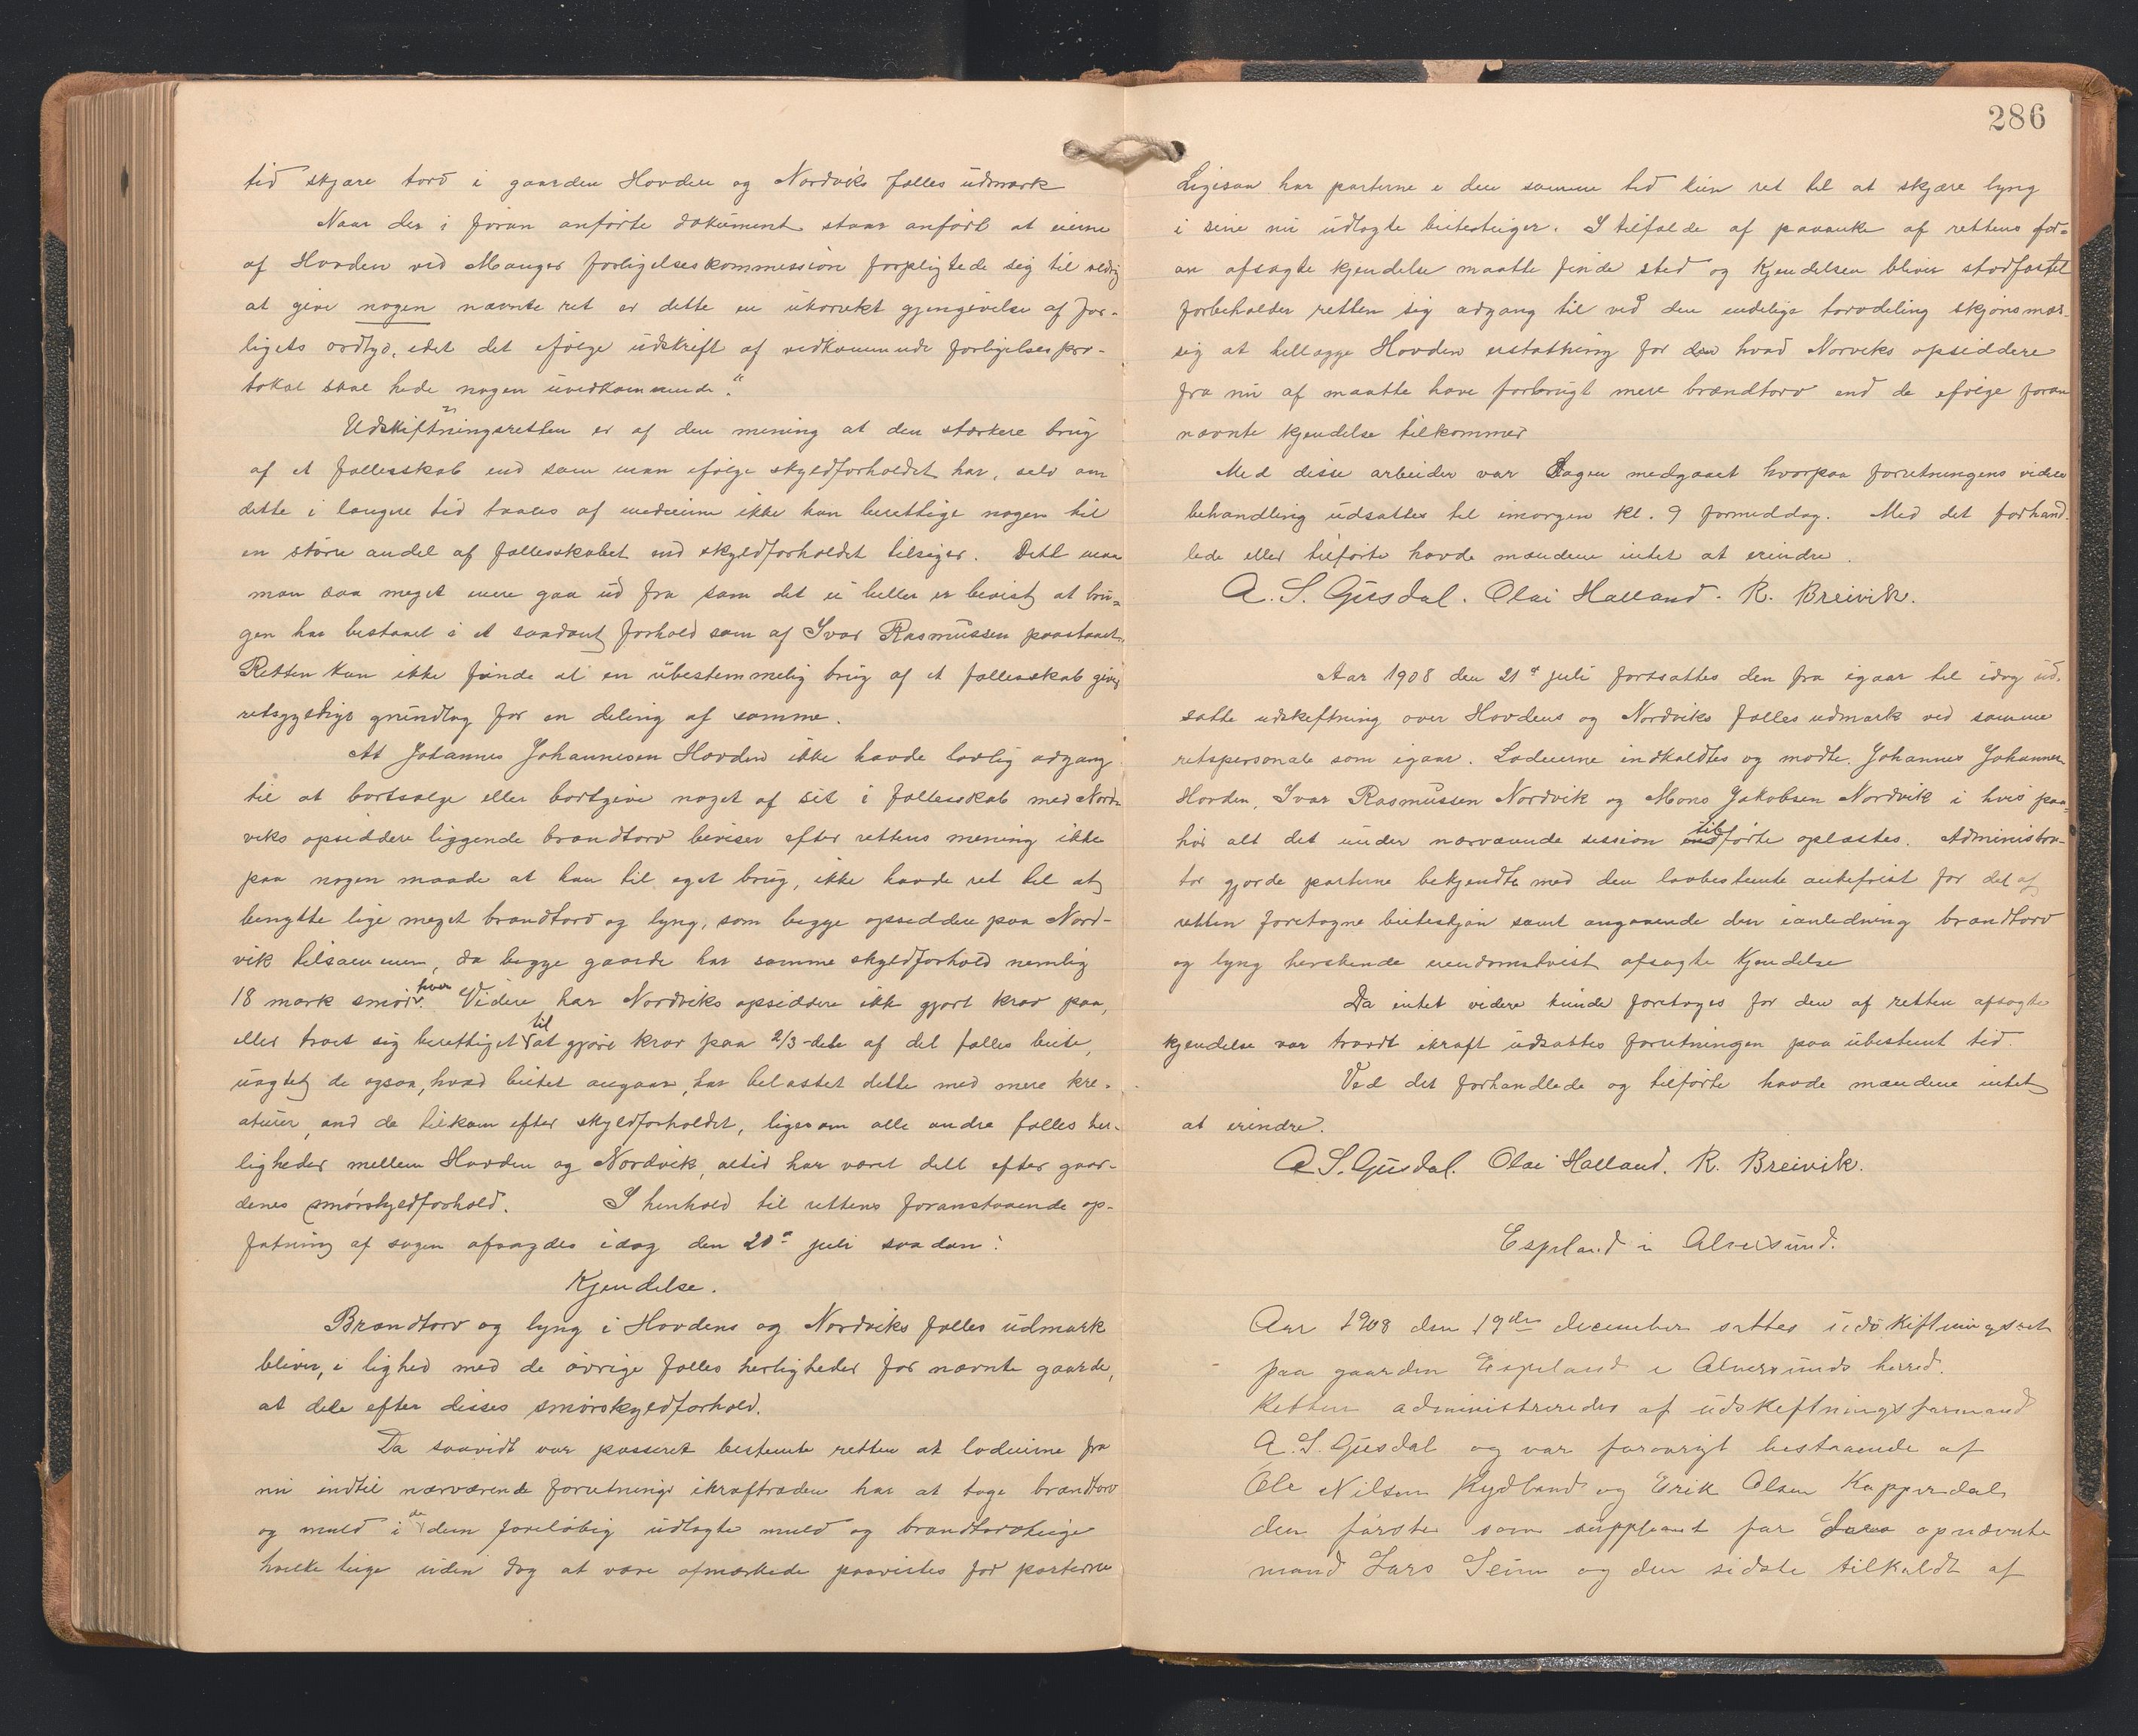 tid skjære torv i gaarden Hovden og Nordviks fælles udmark
Naar der i foran anførte dokument staar anført at eierne
af Hovden ved Manger forligelseskommission forpligtede sig til aldrig
at give nogen nævnte ret er dette en ukorrekt gjengivelse af for-
ligets ordlyd, idet det ifølge udskrift af vedkommende forligelsespro-
tokol skal hede nogen uvedkommende."
Udskiftningsretten er af den mening at den stærkere brug
af et fællesskab end som man ifølge skyldforholdet har, selv om
dette i længere tid taales af medeierne ikke kan berettige nogen til
en større andel af fællesskabet end skyldforholdet tilsiger. Dette maa
man saa meget mere gaa ud fra som det ei heller er bevist at bru-
gen har bestaaet i et saadant forhold som af Ivar Rasmussen paastaaet.
Retten kan ikke finde at en ubestemmelig brug af et fællesskab giver
retsgyldigt grundlag for en deling af samme.
At Johannes Johannesen Hovden ikke havde lovlig adgang
til at bortsælge eller bortgive noget af sit i fællesskab med Nord-
viks opsiddere liggende brændtorv beviser efter rettens mening ikke
paa nogen maade at han til eget brug, ikke havde ret til at
benytte lige meget brændtorv og lyng, som begge opsiddere paa Nord-
vik tilsammen, da begge gaarde har samme skyldforhold nemlig
18 mark smør hver. Videre har Nordviks opsiddere ikke gjort krav paa,
eller troet sig berettiget til at gjøre krav paa 2/3-dele af det fælles beite,
uagtet de ogsaa, hvad beitet angaar, har belastet dette med mere kre-
aturer, end de tilkom efter skyldforholdet, ligesom alle andre fælles her-
ligheder mellem Hovden og Nordvik, altid har været delt efter gaar-
denes smørskyldforhold. I henhold til rettens foranstaaende op-
fatning af sagen afsagdes idag den 20de juli saadan:
Kjendelse.
Brændtorv og lyng i Hovdens og Nordviks fælles udmark
bliver, i lighed med de øvrige fælles herligheder for nævnte gaarde,
at dele efter disses smørskyldforhold.
Da saavidt var passeret bestemte retten at lodeierne fra
nu indtil nærværende forretnings ikrafttræden har at tage brændtorv
og muld i de dem foreløbig udlagte muld og brændtorvteiger
hvilke teige uden dog at være afmærkede paavistes for parterne
286
Ligesaa har parterne i den samme tid kun ret til at skjære lyng
i sine nu udlagte beiteteiger. I tilfælde af paaanke af rettens for-
an afsagte kjendelse maatte finde sted og kjendelsen bliver stadfæstet
forbeholder retten sig adgang til ved den endelige torvdeling skjønsmæs-
sig at tillægge Hovden erstatning for den hvad Norviks opsiddere
fra nu af maatte have forbrugt mere brændtorv end de ifølge foran
nævnte kjendelse tilkommer
Med disse arbeider var dagen medgaaet hvorpaa forretningens videre
behandling udsattes til imorgen kl. 9 formiddag. Med det forhand-
lede eller tilførte havde mændene intet at erindre.
A. S. Gusdal. Olai Halland. R. Breivik.
Aar 1908 den 21de juli fortsattes den fra igaar til idag ud-
satte udskiftning over Hovdens og Nordviks fælles udmark ved samme
retspersonale som igaar. Lodeierne indkaldtes og mødte. Johannes Johannesen
Hovden, Ivar Rasmussen Nordvik og Mons Jakobsen Nordvik i hvis paa-
hør alt det under nærværende session tilførte oplæstes. Administra-
tor gjorde parterne bekjendte med den lovbestemte ankefrist for det af
retten foretagne beiteskjøn samt angaaende den ianledning brændtorv
og lyng herskende eiendomstvist afsagte kjendelse
Da intet videre kunde foretages før den af retten afsagte
kjendelse var traadt ikraft udsattes forretningen paa ubestemt tid.
Ved det forhandlede og tilførte havde mændene intet
at erindre.
A. S. Gusdal. Olai Halland. R. Breivik.
Espeland i Alversund.
Aar 1908 den 19de december sattes udskiftningsret
paa gaarden Espeland i Alversunds herred.
Retten administreredes af udskiftningsformand
A. S. Gusdal og var forøvrigt bestaaende af
Ole Nilsen Rydland og Erik Olsen Kopperdal
den første som suppleant for opnævnte
mand Lars Seim og den sidste tilkaldt af